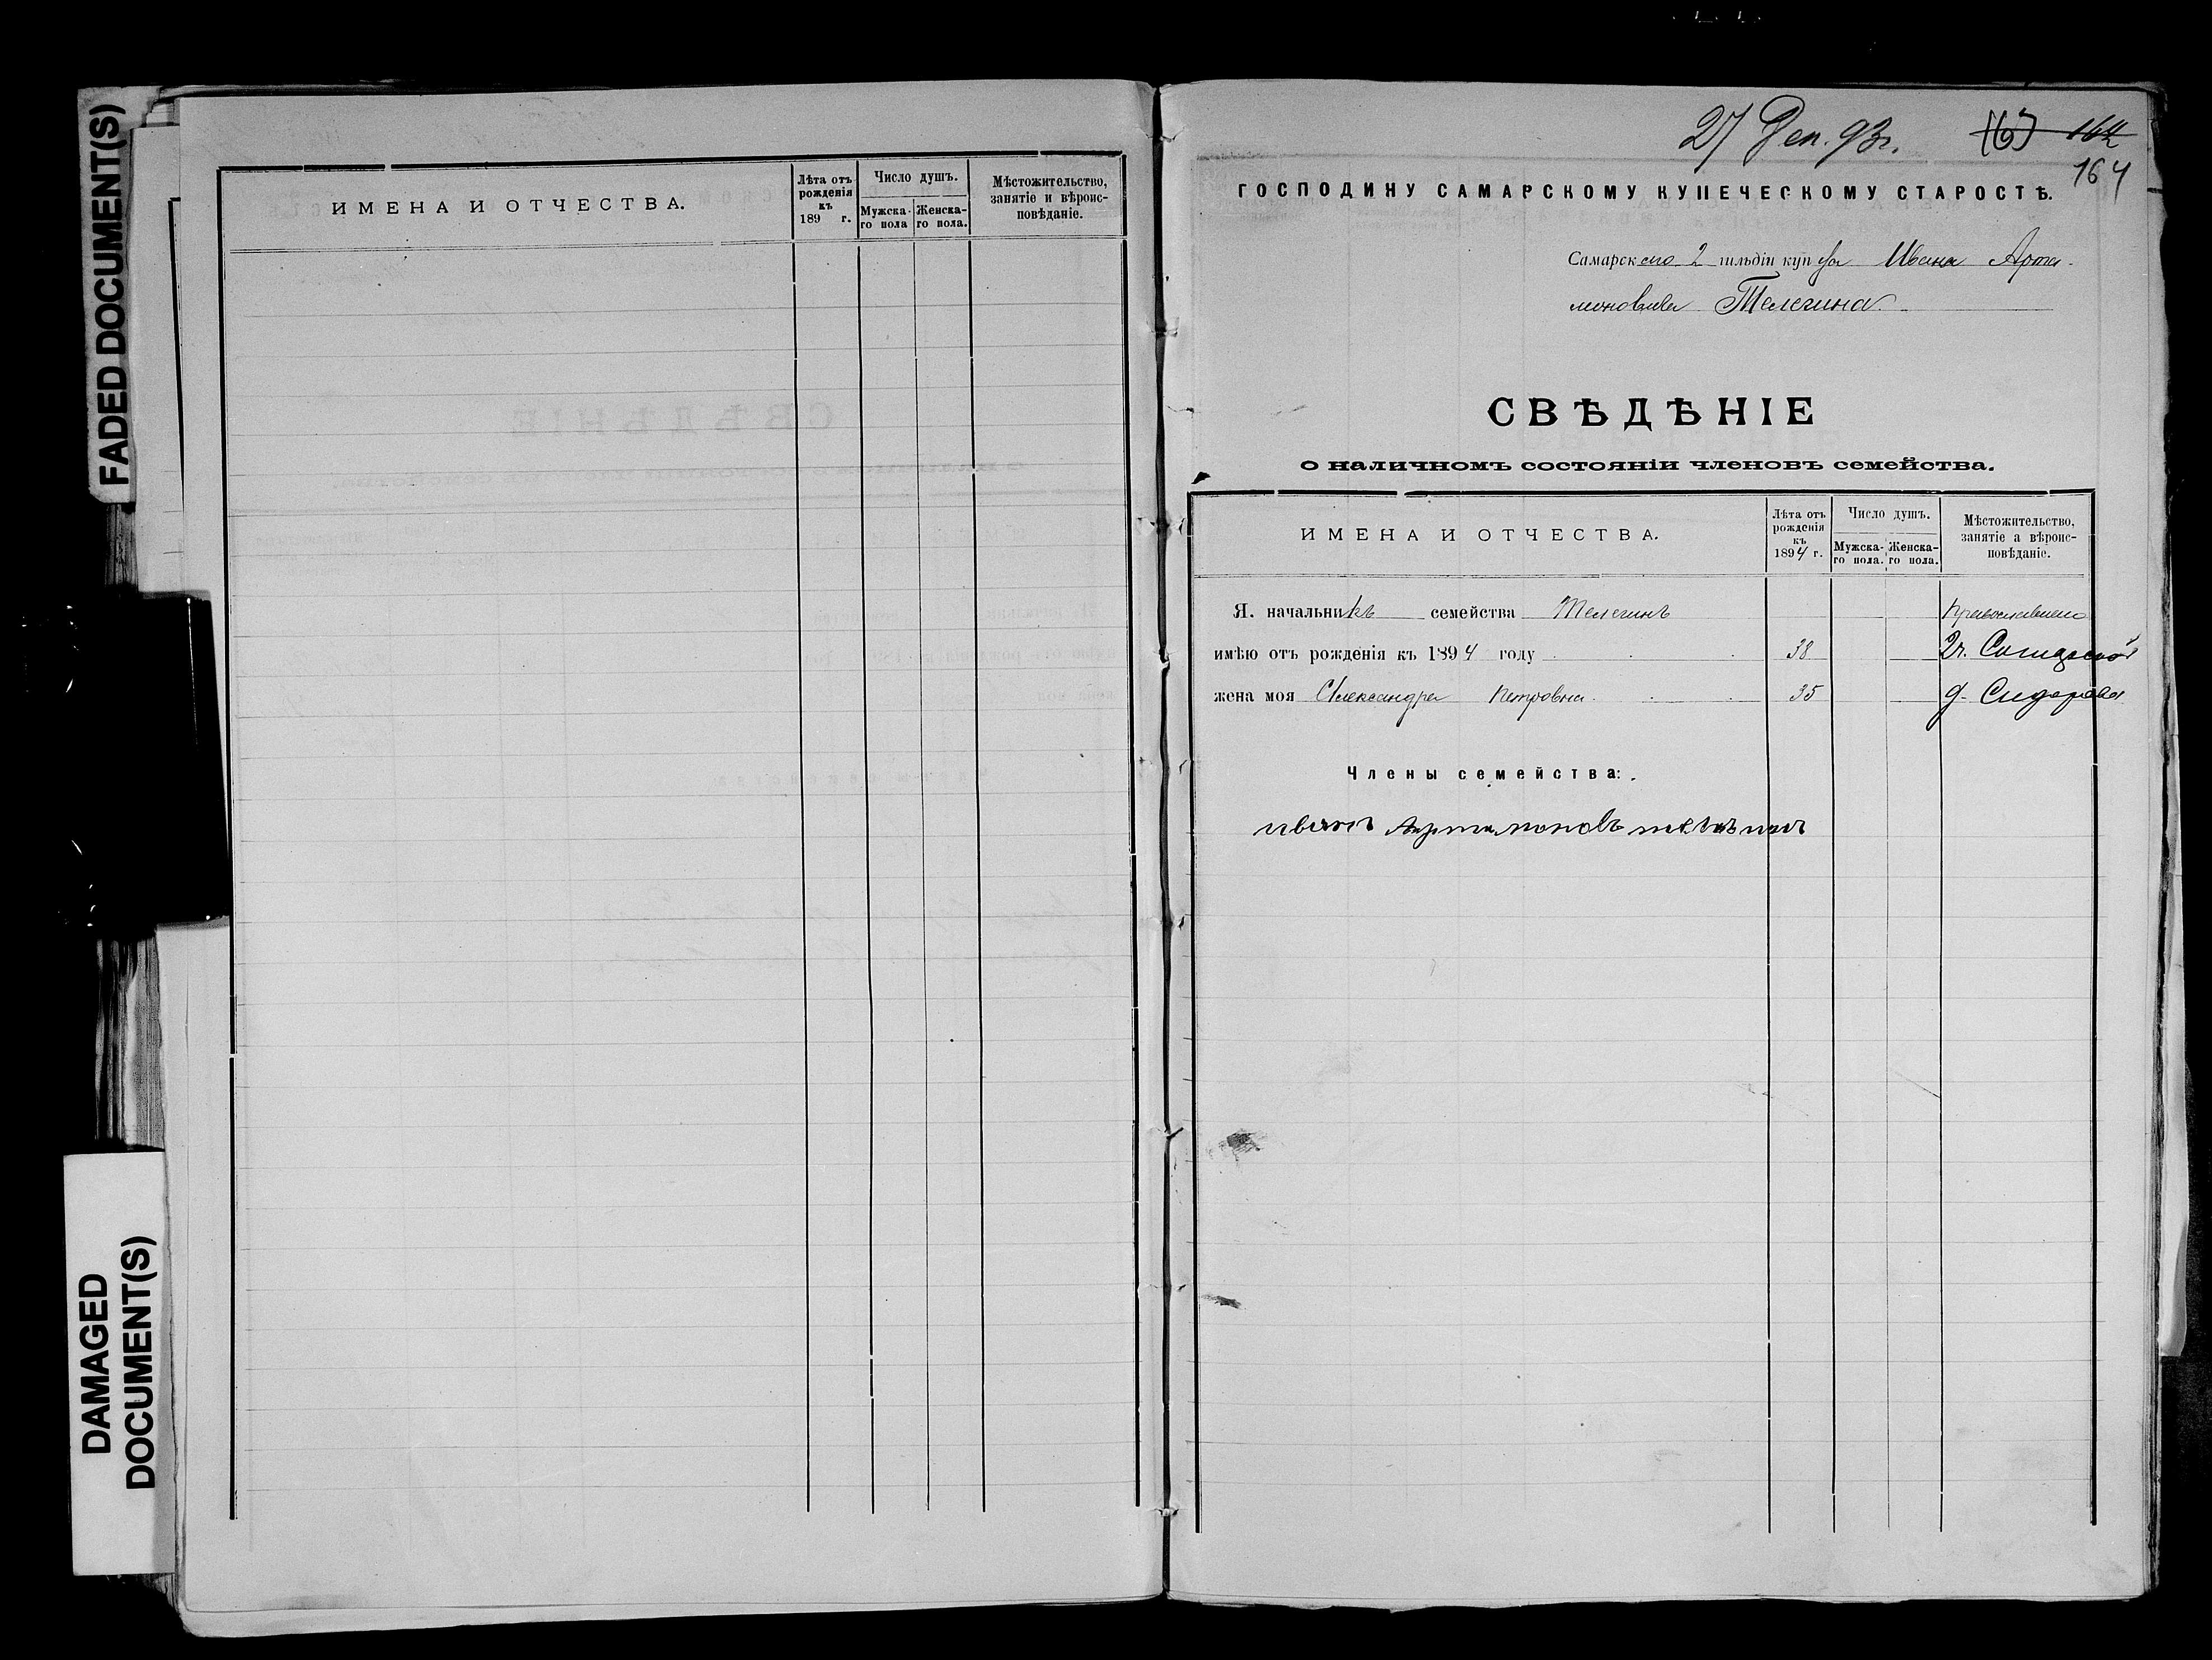 FADED DOCUMENT(S)
ИМЕНА И ОТЧЕСТВА.
Лѣта отъ рожденія къ 189 г.
Число душъ.
Мужска-го пола
Женска-го пола.
Мѣстожительство, занятіе и вѣроис-повѣданіе.
DAMAGED
DOCUMENT(S)
27 Дек. 93 г.
164
ГОСПОДИНУ САМАРСКОМУ КУПЕЧЕСКОМУ СТАРОСТѢ.
Самарскаго 2 гильдіи купца Ивана Арта-
моновича Телегина.
СВѢДѢНІЕ
о наличномъ состояніи членовъ семейства.
ИМЕНА И ОТЧЕСТВА.
Лѣта отъ рожденія къ 1894 г.
Число душъ.
Мужска-го пола.
Женска-го пола.
Мѣстожительство, занятіе а вѣроис-повѣданіе.
Я. начальникъ семейства Телегинъ
имѣю отъ рожденія къ 1894 году 38
жена моя Александра Петровна 35 д. Сидорова
Члены семейства:
иванъ Артамоновъ